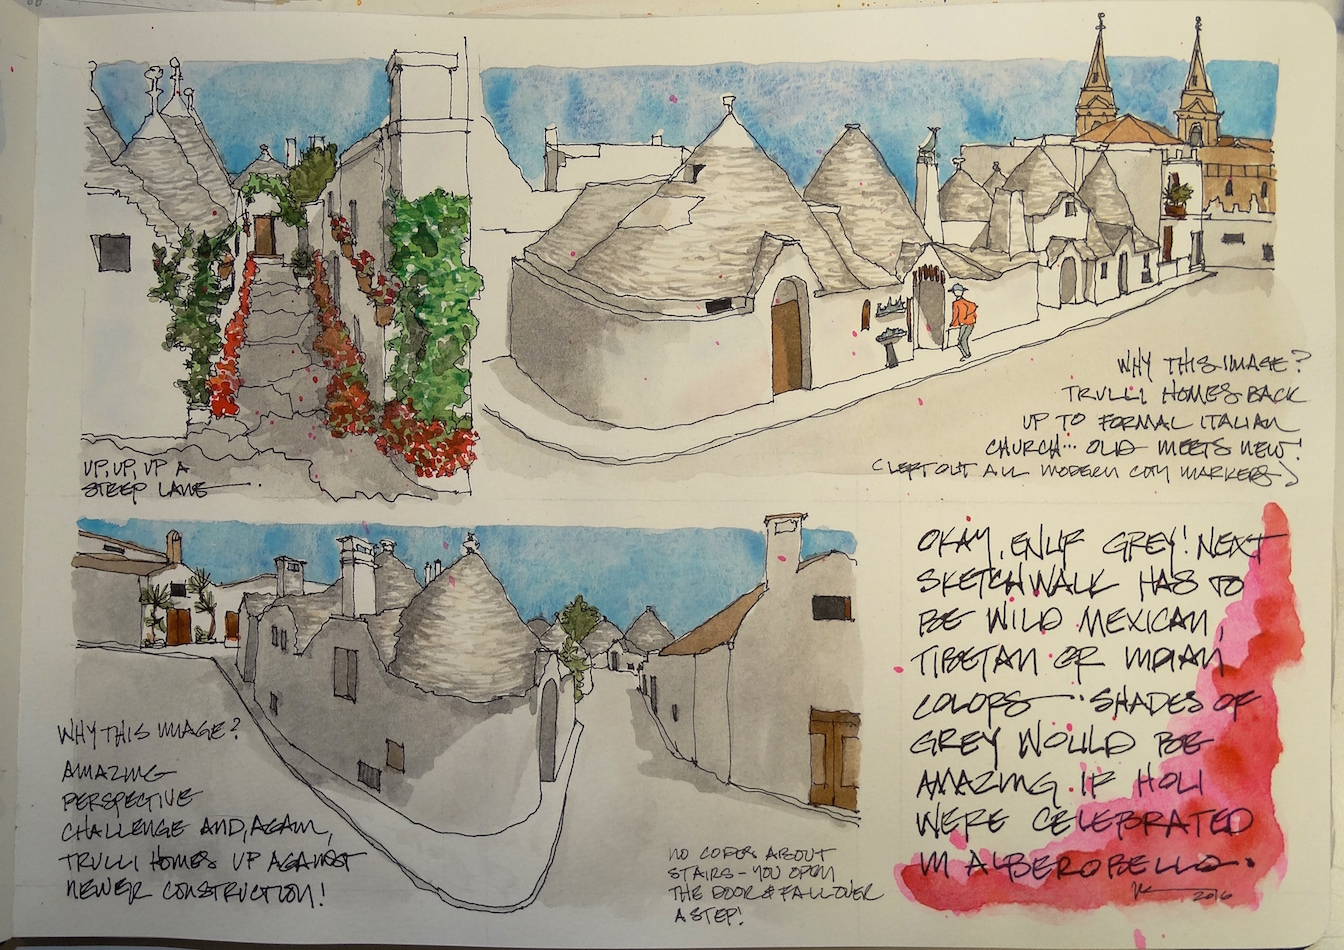 UP, UP, UP A
STEEP LANE
WHY THIS IMAGE?
TRULLI HOMES BACK
UP TO FORMAL ITALIAN
CHURCH... OLD MEETS NEW!
(LEFT OUT ALL MODERN CITY MARKERS)
WHY THIS IMAGE?
AMAZING
PERSPECTIVE
CHALLENGE AND, AGAIN,
TRULLI HOMES UP AGAINST
NEWER CONSTRUCTION!
NO CODES ABOUT
STAIRS - YOU OPEN
THE DOOR & FALL OVER
A STEP!
OKAY, ENUF GREY! NEXT
SKETCHWALK HAS TO
BE WILD MEXICAN,
TIBETAN OR INDIAN
COLORS... SHADES OF
GREY WOULD BE
AMAZING IF HOLI
WERE CELEBRATED
IN ALBEROBELLO.
2016